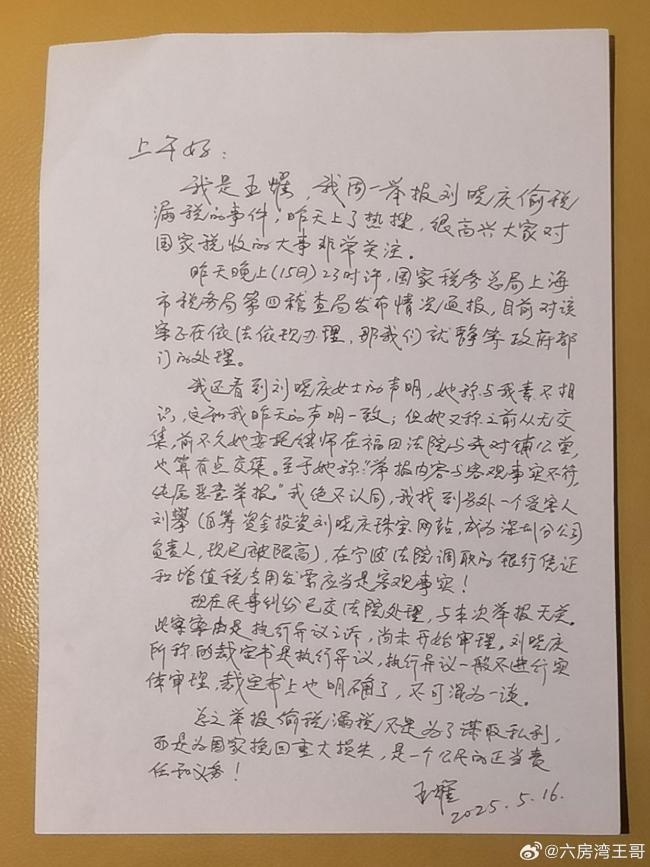 上午好：
我是王耀，我周一举报刘晓庆偷税
漏税的事件，昨天上了热搜，很高兴大家对
国家税收的大事非常关注。
昨天晚上(15日)23时许，国家税务总局上海
市税务局第四稽查局发布情况通报，目前对该
案子在依法依规办理，那我们就静等政府部
门的处理。
我还看到刘晓庆女士的声明，她称与我素不相
识，这和我昨天的声明一致；但她又称之前从无交
集，前不久她委托律师在福田法院与我对铺公堂，
也算有点交集。至于她称："举报内容与客观事实不符，
纯属恶意举报。"我绝不认同，我找到另外一个受害人
刘攀(自筹资金投资刘晓庆珠宝网站，成为深圳分公司
负责人，现已被限高)，在宁波法院调取的银行凭证
和增值税专用发票应当是客观事实！
现在民事纠纷已交法院处理，与本次举报无关。
此案案由是执行异议之诉，尚未开始审理。刘晓庆
所称的裁定书是执行异议，执行异议一般不进行实
体审理，裁定书上也明确了，不可混为一谈。
总之举报偷税漏税不是为了谋取私利，
而是为国家挽回重大损失，是一个公民的正当责
任和义务！
王耀
2025.5.16.
@六房湾王哥